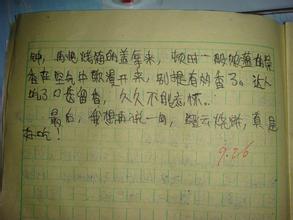 钟，再把烧箱的盖拿来，顿时一股饱蓬的清
香在空气中散漫开来，别提有的香了。让人
吃了口齿留香，久久不能忘怀。
最后，我想再说一句，烧烤，真是
好吃！
9.26